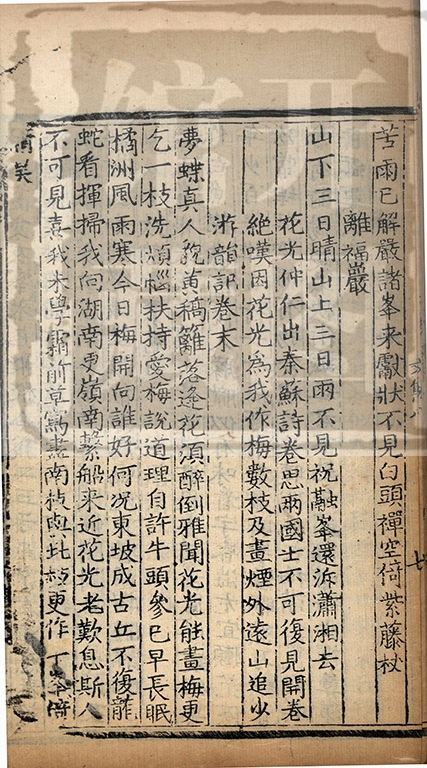 苦雨已解嚴諸峯来獻狀不見白頭禪空倚紫藤杖
離福巖
山下三日晴山上三日雨不見祝融峯還泝瀟湘去
花光仲仁出秦蘇詩卷思兩國士不可復見開卷
絶嘆因花光爲我作梅數枝及畫煙外遠山追少
游韻記卷末
夢蝶真人貌黄槁籬落逢花須醉倒雅聞花光能畫梅更
乞一枝洗煩惱扶持愛梅說道理自許牛頭參已早長眠
橘洲風雨寒今日梅開向誰好何况東坡成古丘不復龍
蛇看揮掃我向湖南更嶺南繫船来近花光老歎息斯人
不可見喜我未學霜前草寫盡南枝與北枝更作千峯倚